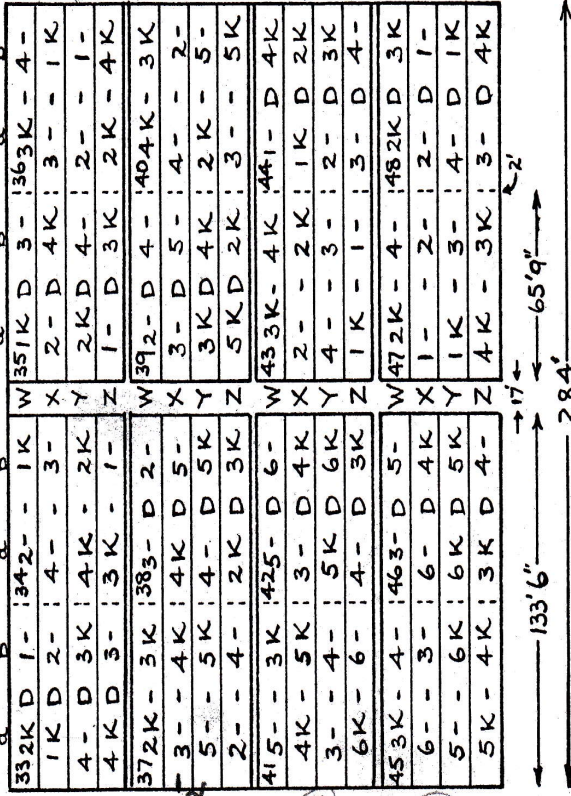 a b a b a b a b
33 2K D 1 - 34 2 - - 1K W 35 1K D 3 - 36 3K - 4 -
1K D 2 - 4 - - 3 - X 2 - D 4K 3 - - 1K
4 - D 3K 4K - 2K Y 2K D 4 - 2 - - 1 -
4K D 3 - 3K - 1 - Z 1 - D 3K 2K - 4K
37 2K - 3K 38 3 - D 2 - W 39 2 - D 4 - 40 4K - 3K
3 - - 4K 4K D 5 - X 3 - D 5 - 4 - - 2 -
5 - - 5K 4 - D 5K Y 3K D 4K 2K - 5 -
2 - - 4 - 2K D 3K Z 5K D 2K 3 - - 5K
41 5 - - 3K 42 5 - D 6 - W 43 3K - 4K 44 1 - D 4K
4K - 5K 3 - D 4K X 2 - - 2K 1K D 2K
3 - - 4 - 5K D 6K Y 4 - - 3 - 2 - D 3K
6K - 6 - 4 - D 3K Z 1K - 1 - 3 - D 4 -
45 3K - 4 - 46 3 - D 5 - W 47 2K - 4 - 48 2K D 3K
6 - - 3 - 6 - D 4K X 1 - - 2 - 2 - D 1 -
5 - - 6K 6K D 5K Y 1K - 3 - 4 - D 1K
5K - 4K 3K D 4 - Z 4K - 3K 3 - D 4K
17' 2'
133'6" 65'9"
284'